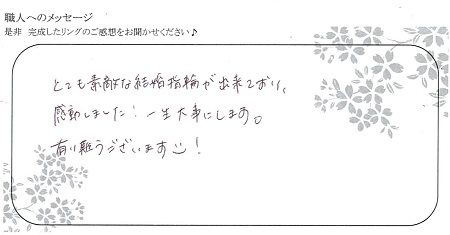 職人へのメッセージ
是非 完成したリングのご感想をお聞かせください♪
とても素敵な結婚指輪が出来ており、
感動しました！一生大事にします。
有り難うございます☺！